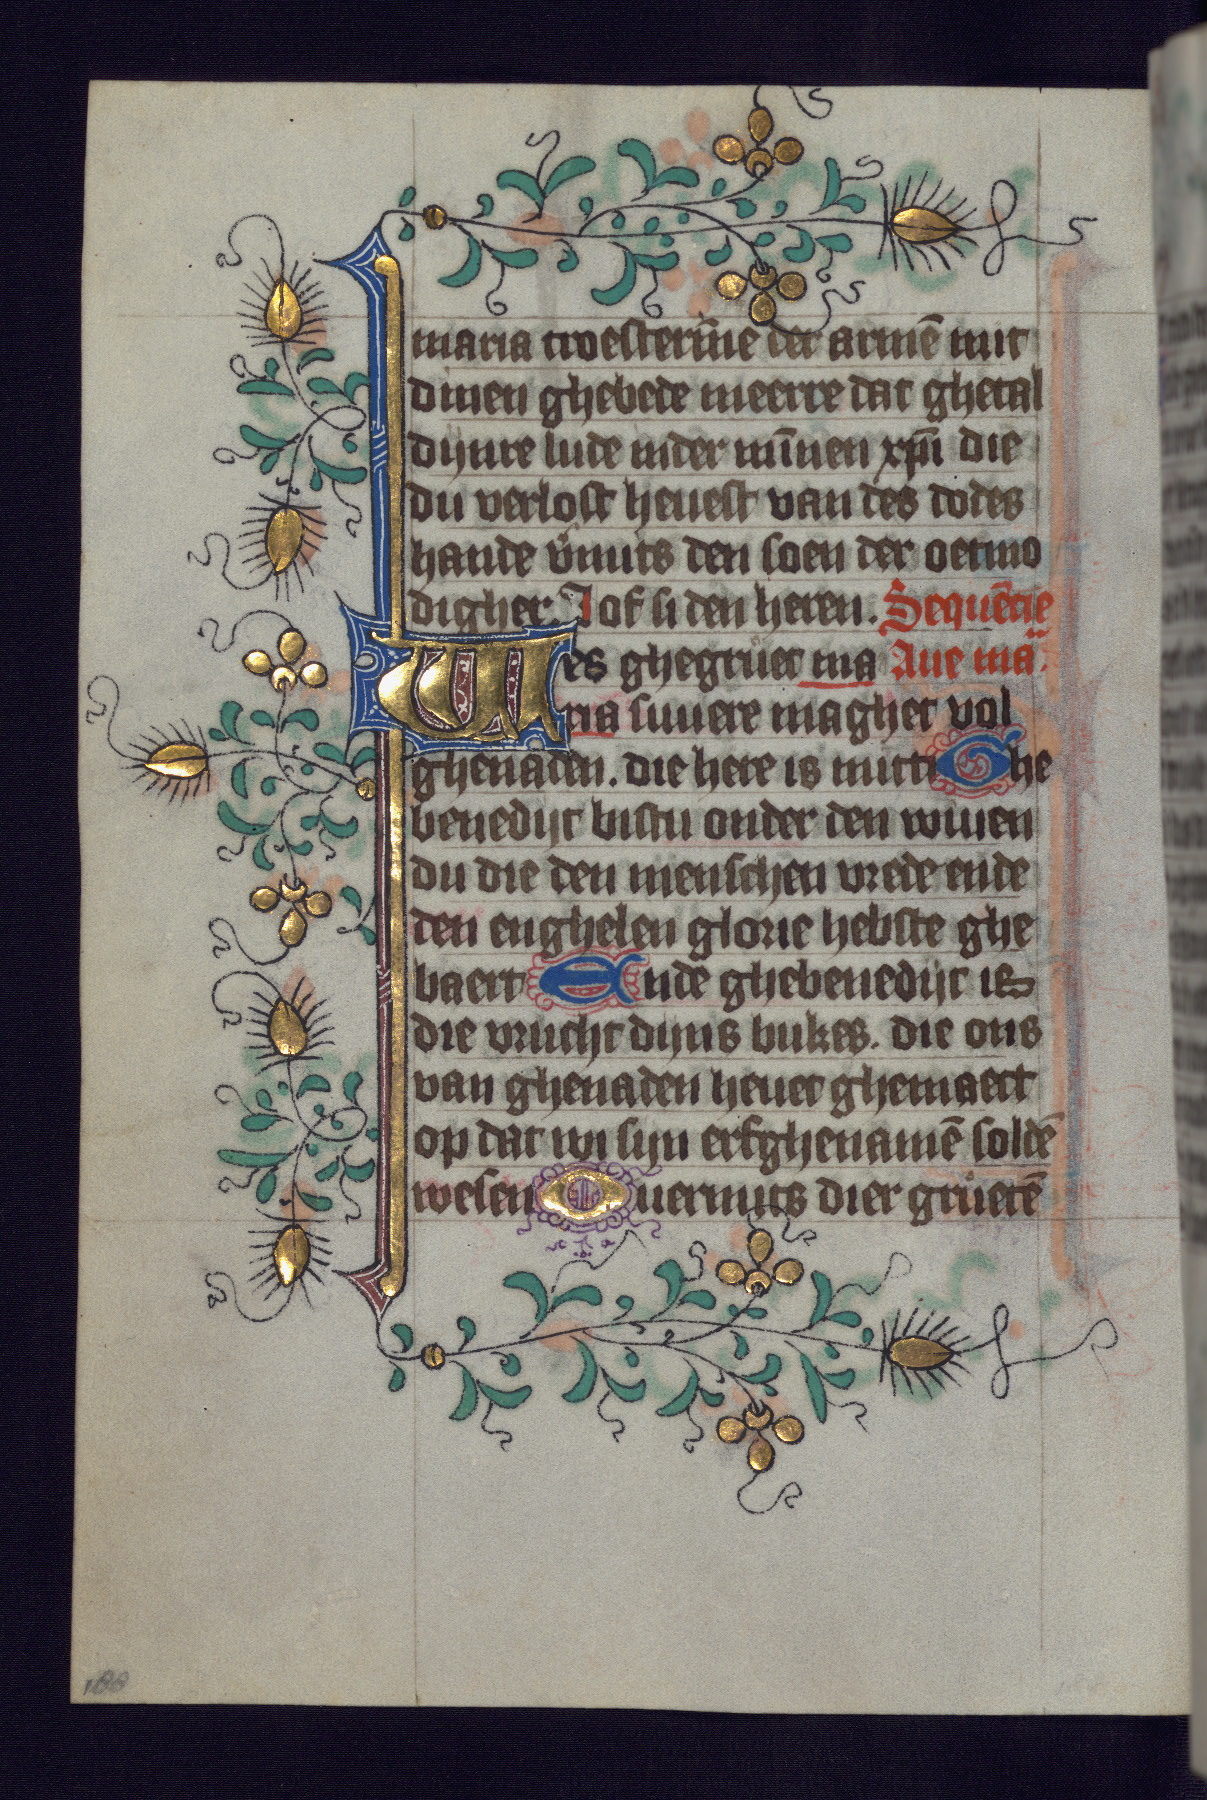 maria troesterīne der armē mit
dinen ghebede meerre dat ghetal
dijnre lude inder mīnen xp̄i die
du verlost heuest van des dodes
hande v̄mits den soen der oetmo
digher. Lof si den heren. Sequēcie
Wes ghegruet ma Aue ma.
ria suuere maghet vol
ghenaden. die here is mitti Ghe
benedijt bistu onder den wiuen
du die den menschen vrede ende
den enghelen glorie hebste ghe
baert Ende ghebenedijt is
die vrucht dijns bukes. die ons
van ghenaden heuet ghemaect
op dat wi sijn erfghenamē soldē
wesen Ouermits dier gruetē
188